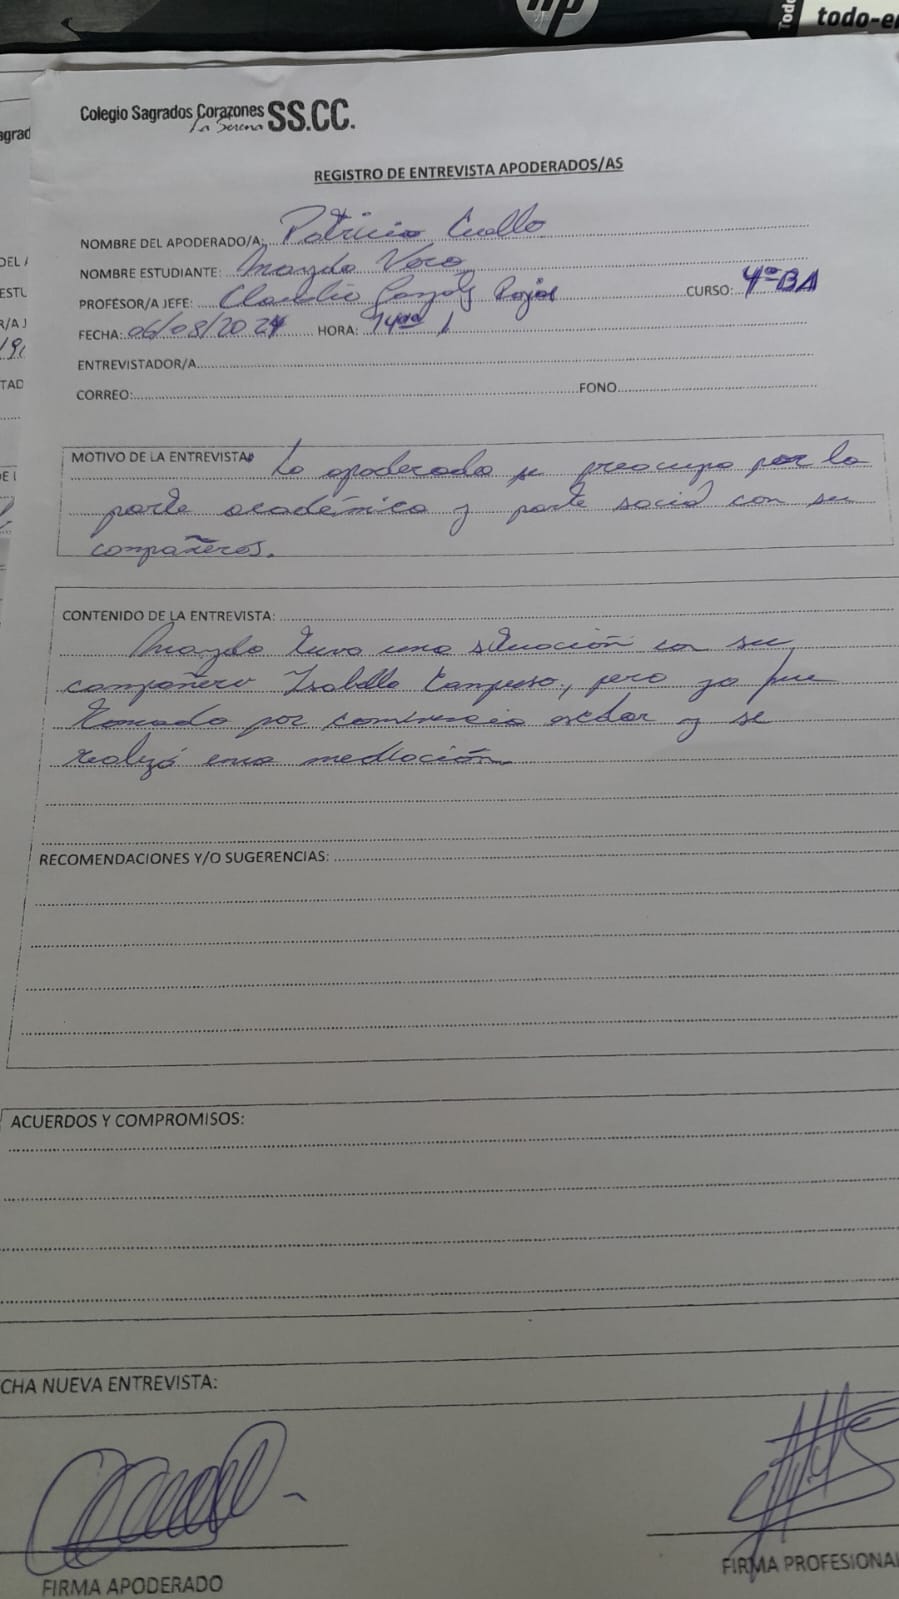 todo-en
Todo
hp
Colegio Sagrados Corazones SS.CC.
La Serena
REGISTRO DE ENTREVISTA APODERADOS/AS
NOMBRE DEL APODERADO/A: Patricia Cuello
NOMBRE ESTUDIANTE: Mayda Vera
PROFESOR/A JEFE: Claudio Rojas CURSO: 4º BA
FECHA: 06/08/2024 HORA: 14
ENTREVISTADOR/A
CORREO: FONO
MOTIVO DE LA ENTREVISTA La apoderada se preocupa por la
parte académica y parte social con su
compañeros.
CONTENIDO DE LA ENTREVISTA:
tuvo una situación con su
compañera Isabella, pero ya fue
tomado por convivencia escolar y se
realizó una mediación
RECOMENDACIONES Y/O SUGERENCIAS:
ACUERDOS Y COMPROMISOS:
CHA NUEVA ENTREVISTA:
FIRMA APODERADO
FIRMA PROFESIONA